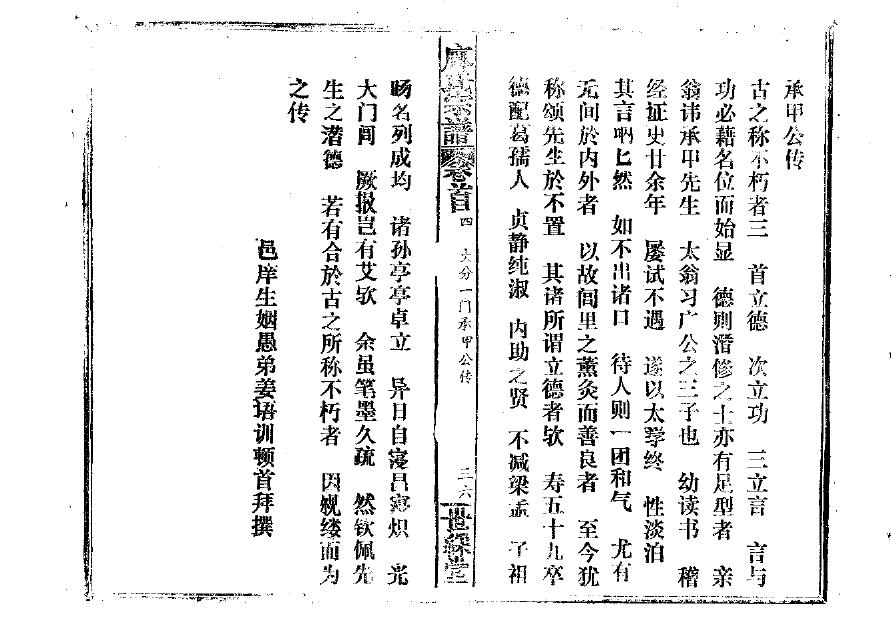 承甲公传
古之称不朽者三 首立德 次立功 三立言 言与
功必藉名位而始显 德则潜修之士亦有足型者 亲
翁讳承甲先生 太翁习广公之三子也 幼读书 稽
经证史廿余年 屡试不遇 遂以太学终 性淡泊
其言呐匕然 如不出诸口 待人则一团和气 尤有
无间於内外者 以故闾里之薰灸而善良者 至今犹
称颂先生於不置 其诸所谓立德者欤 寿五十九卒
德配葛孺人 贞静纯淑 内助之贤 不减梁孟 子祖
宗譜 卷首 四 大分一门承甲公传 三六 世綵堂
旸名列成均 诸孙亭亭卓立 异日自寖昌寖炽 光
大门闾 厥报岂有艾欤 余虽笔墨久疏 然钦佩先
生之潜德 若有合於古之所称不朽者 因覼缕而为
之传
邑庠生姻愚弟姜语训顿首拜撰